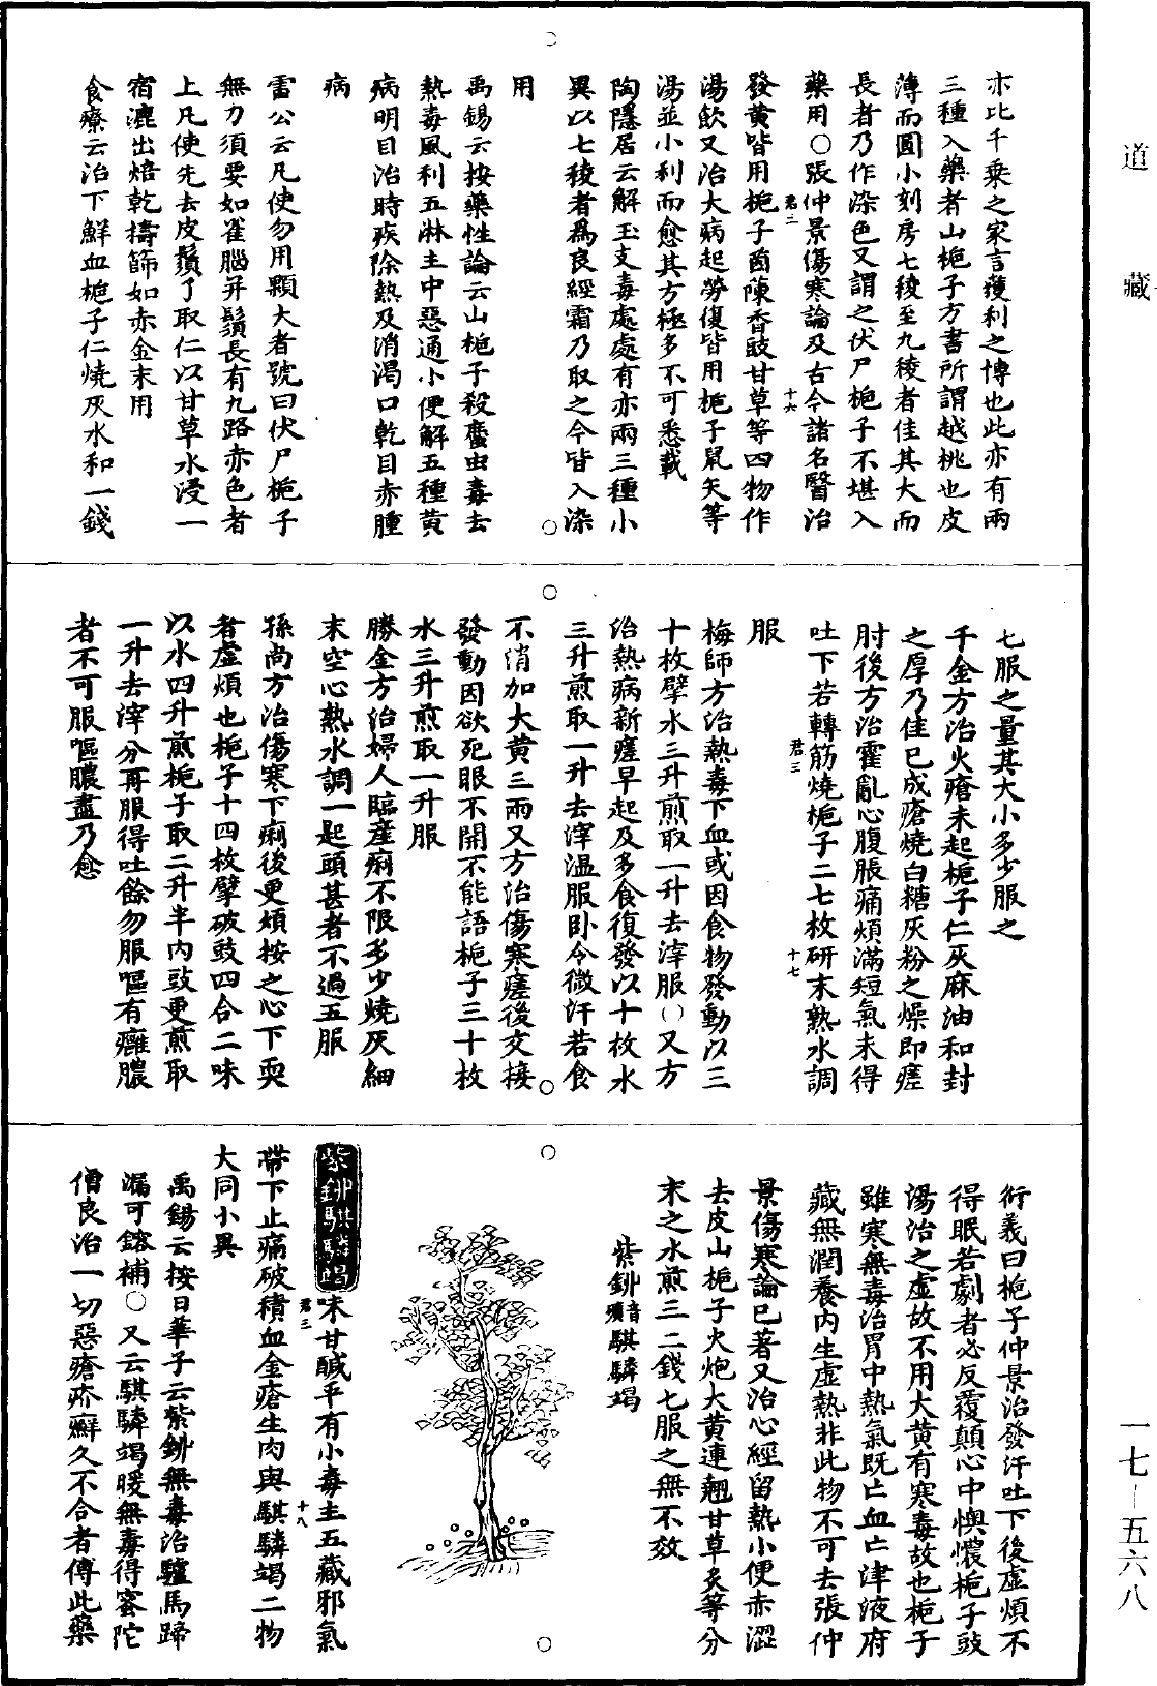 道藏
亦比千乘之家言獲利之博也此亦有兩
三種入藥者山梔子方書所謂越桃也皮
薄而圓小刻房七稜至九稜者佳其大而
長者乃作染色又謂之伏尸梔子不堪入
藥用○張仲景傷寒論及古今諸名醫治
君二 十六
發黃皆用梔子茵蔯香豉甘草等四物作
湯飲又治大病起勞復皆用梔子鼠矢等
湯並小利而愈其方極多不可悉載
陶隱居云解玉支毒處處有亦兩三種小
異以七稜者爲良經霜乃取之今皆入染
用
禹錫云按藥性論云山梔子殺䗪虫毒去
熱毒風利五淋主中惡通小便解五種黃
病明目治時疾除熱及消渴口乾目赤腫
病
雷公云凡使勿用顆大者號曰伏尸梔子
無力須要如雀腦并鬚長有九路赤色者
上凡使先去皮鬚了取仁以甘草水浸一
宿漉出焙乾擣篩如赤金末用
食療云治下鮮血梔子仁燒灰水和一錢
七服之量其大小多少服之
千金方治火瘡未起梔子仁灰麻油和封
之厚乃佳已成瘡燒白糖灰粉之燥即瘥
肘後方治霍亂心腹脹痛煩滿短氣未得
吐下若轉筋燒梔子二七枚研末熟水調
君三 十七
服
梅師方治熱毒下血或因食物發動以三
十枚擘水三升煎取一升去滓服○又方
治熱病新瘥早起及多食復發以十枚水
三升煎取一升去滓溫服卧令微汗若食
不消加大黃三兩又方治傷寒瘥後交接
發動因欲死眼不開不能語梔子三十枚
水三升煎取一升服
勝金方治婦人臨產痢不限多少燒灰細
末空心熱水調一起頭甚者不過五服
孫尚方治傷寒下痢後更煩按之心下耎
者虛煩也梔子十四枚擘破豉四合二味
以水四升煎梔子取二升半內豉更煎取
一升去滓分再服得吐餘勿服嘔有癰膿
者不可服嘔膿盡乃愈
衍義曰梔子仲景治發汗吐下後虛煩不
得眠若劇者必反覆顛心中懊憹梔子豉
湯治之虛故不用大黃有寒毒故也梔子
雖寒無毒治胃中熱氣既亡血亡津液府
藏無潤養內生虛熱非此物不可去張仲
景傷寒論已著又治心經留熱小便赤澀
去皮山梔子火炮大黃連翹甘草炙等分
末之水煎三二錢七服之無不效
紫鉚音礦騏驎竭
紫鉚騏驎竭味甘鹹平有小毒主五藏邪氣
君三 十八
帶下止痛破積血金瘡生肉與騏驎竭二物
大同小異
禹錫云按日華子云紫鉚無毒治驢馬蹄
漏可鎔補○又云騏驎竭暖無毒得蜜陀
僧良治一切惡瘡疥癬久不合者傅此藥
一七—五六八